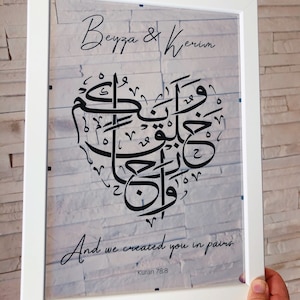 Beyza & Kerim
وَخَلَقْنَاكُمْ أَزْوَاجًا
And we created you in pairs
Kuran 78:8